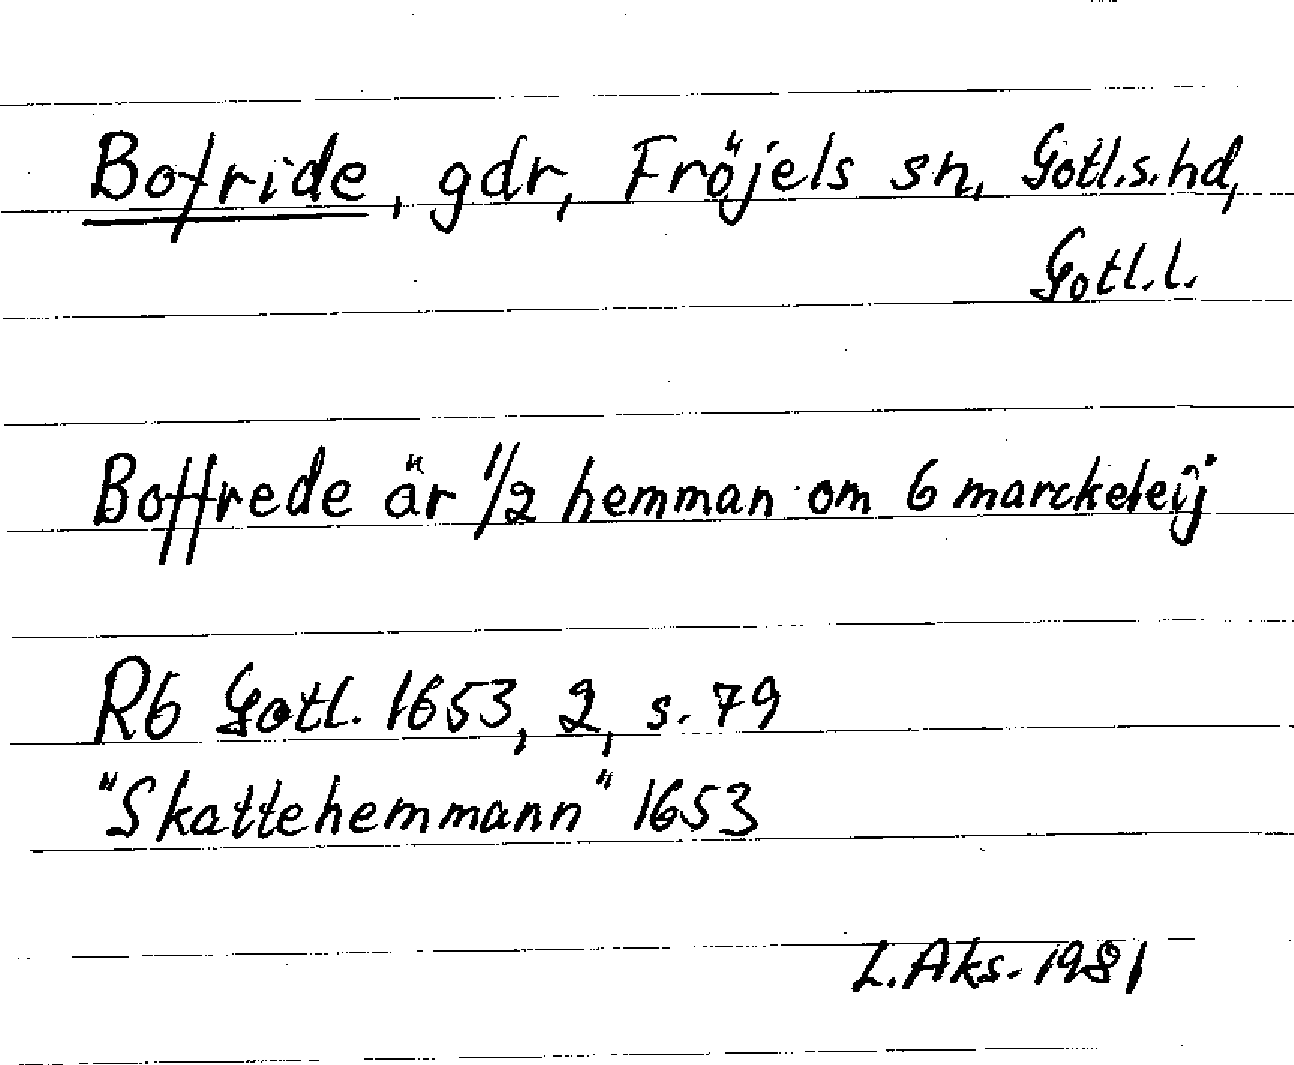 Bofride, gdr, Fröjels sn, Gotl.s.hd,
Gotl.l.
Boffrede är 1/2 hemman om 6 marckeleij
Rb Gotl. 1653, 2, s. 79
"Skattehemmann" 1653
L. Aks. 1981